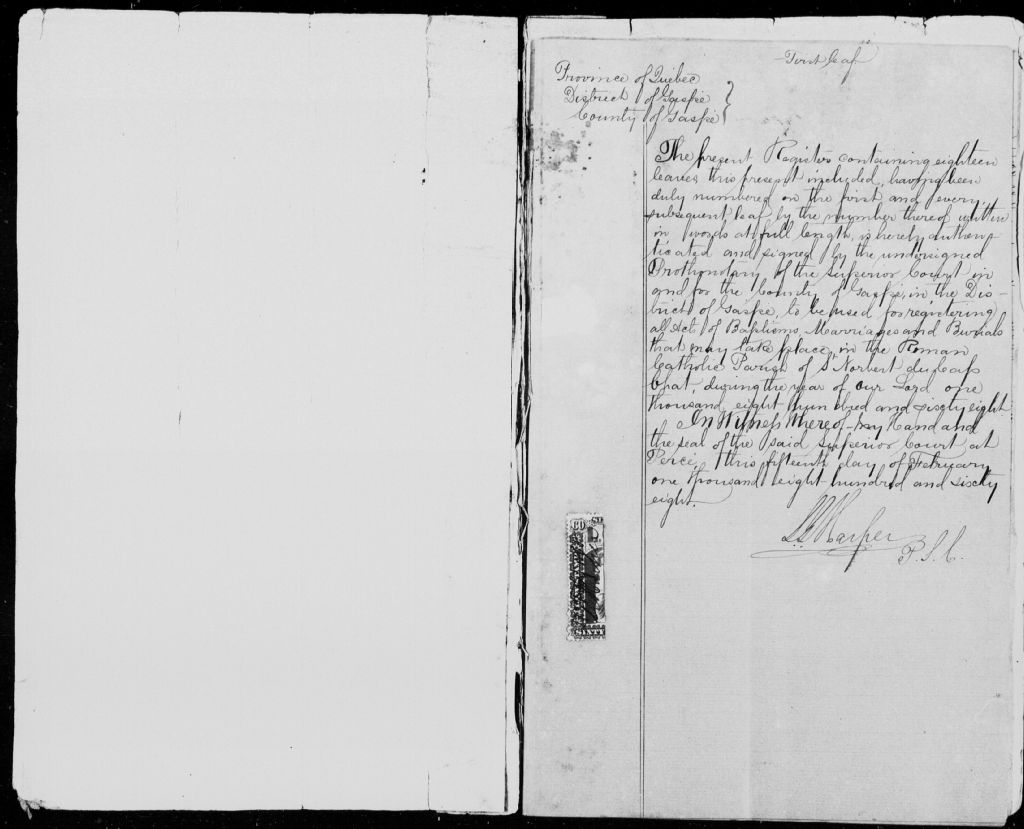 First leaf
Province of Quebec
District of Gaspé
County of Gaspé
The present Register containing eighteen
leaves, this present included, having been
duly numbered on the first and every
subsequent leaf, by the number thereof written
in words at full length, is hereby authen-
ticated and signed by the undersigned
Prothonotary of the Superior Court in
and for the County of Gaspé, in the Dis-
trict of Gaspé, to be used for registering
all Acts of Baptisms, Marriages and Burials
that may take place, in the Roman
Catholic Parish of St Norbert du Cap
Chat, during the year of our Lord one
thousand eight hundred and sixty eight
In Witness Whereof - My Hand and
the seal of the said Superior Court at
Percé, this fifteenth day of February
one thousand eight hundred and sixty
eight.
Harper
P. S. C.
60